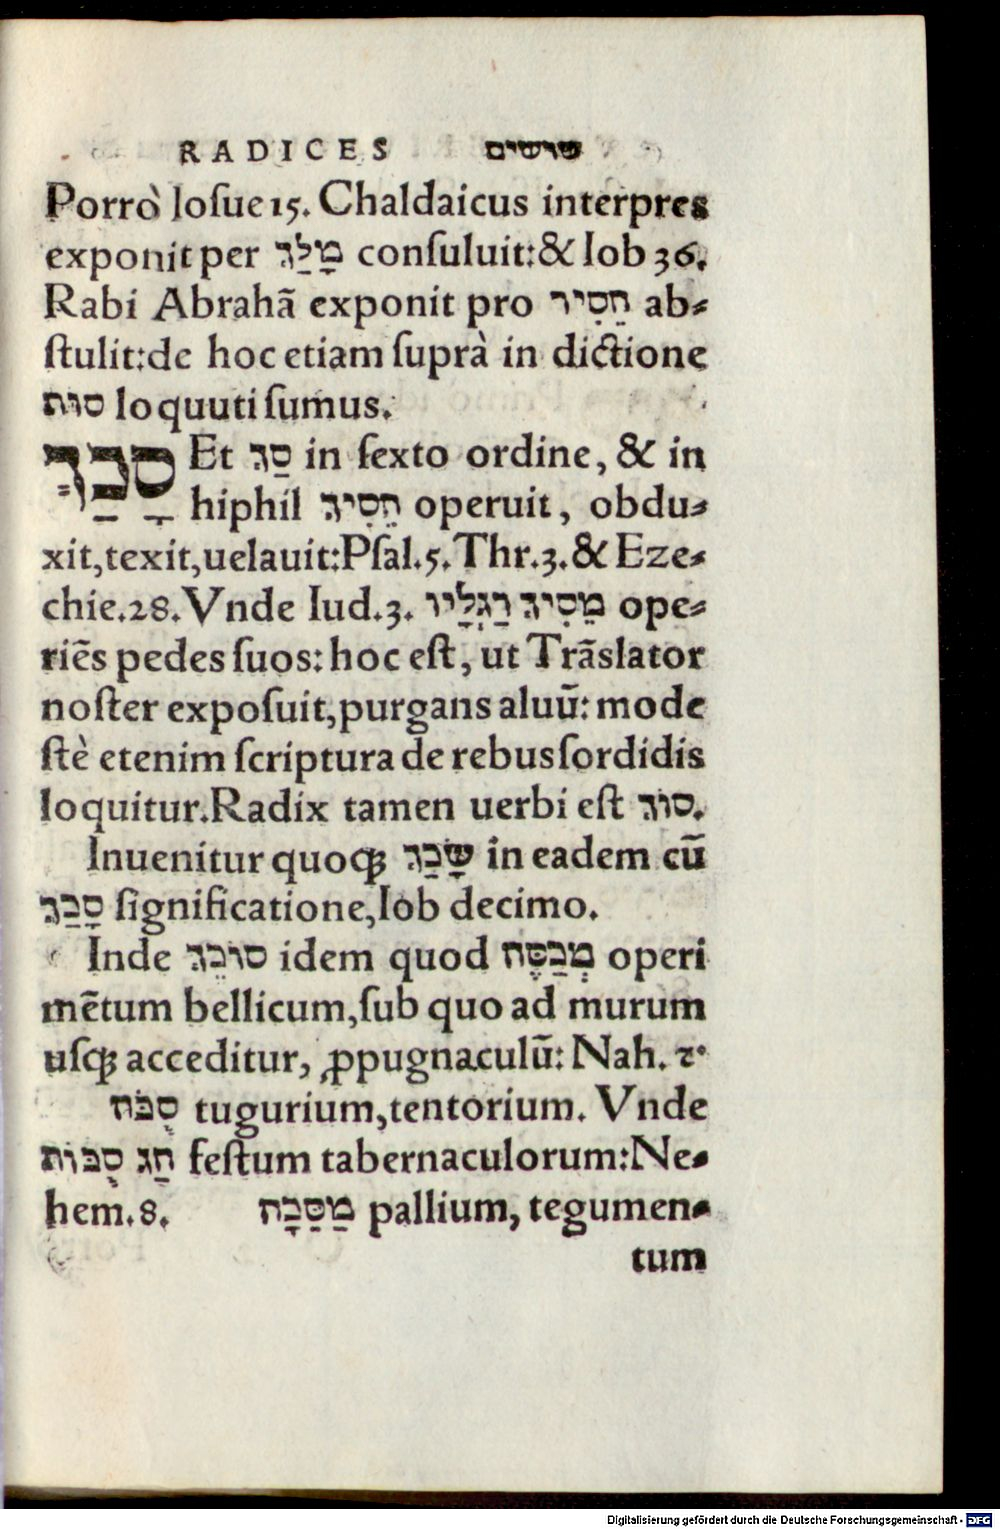 RADICES שרשים
Porrò Ioſue 15. Chaldaicus interpres
exponit per מָלַךְ conſuluit: & Iob 36.
Rabi Abrahã exponit pro הֵסִיר ab⸗
ſtulit: de hoc etiam ſuprà in dictione
סות loquuti ſumus.
סָכַךְ Et סַךְ in ſexto ordine, & in
hiphil הֵסִיךְ operuit, obdu⸗
xit, texit, uelauit: Pſal. 5. Thr. 3. & Eze⸗
chie. 28. Vnde Iud. 3. מֵסִיךְ רַגְלָיו ope⸗
riẽs pedes ſuos: hoc eſt, ut Trãslator
noſter expoſuit, purgans aluũ: mode
ſtè etenim ſcriptura de rebus ſordidis
loquitur. Radix tamen uerbi eſt סוֹךְ.
Inuenitur quoqꝫ שָׂכַךְ in eadem cũ
סָכַךְ ſignificatione, Iob decimo.
Inde סוֹכֵךְ idem quod מְכַסֶּה operi
mẽtum bellicum, ſub quo ad murum
uſqꝫ acceditur, ꝓpugnaculũ: Nah. 2.
סֻכֹּה tugurium, tentorium. Vnde
חַג סֻכּוֹת feſtum tabernaculorum: Ne⸗
hem. 8. מַסֵּכָה pallium, tegumen⸗
tum
Digitalisierung gefördert durch die Deutsche Forschungsgemeinschaft - DFG